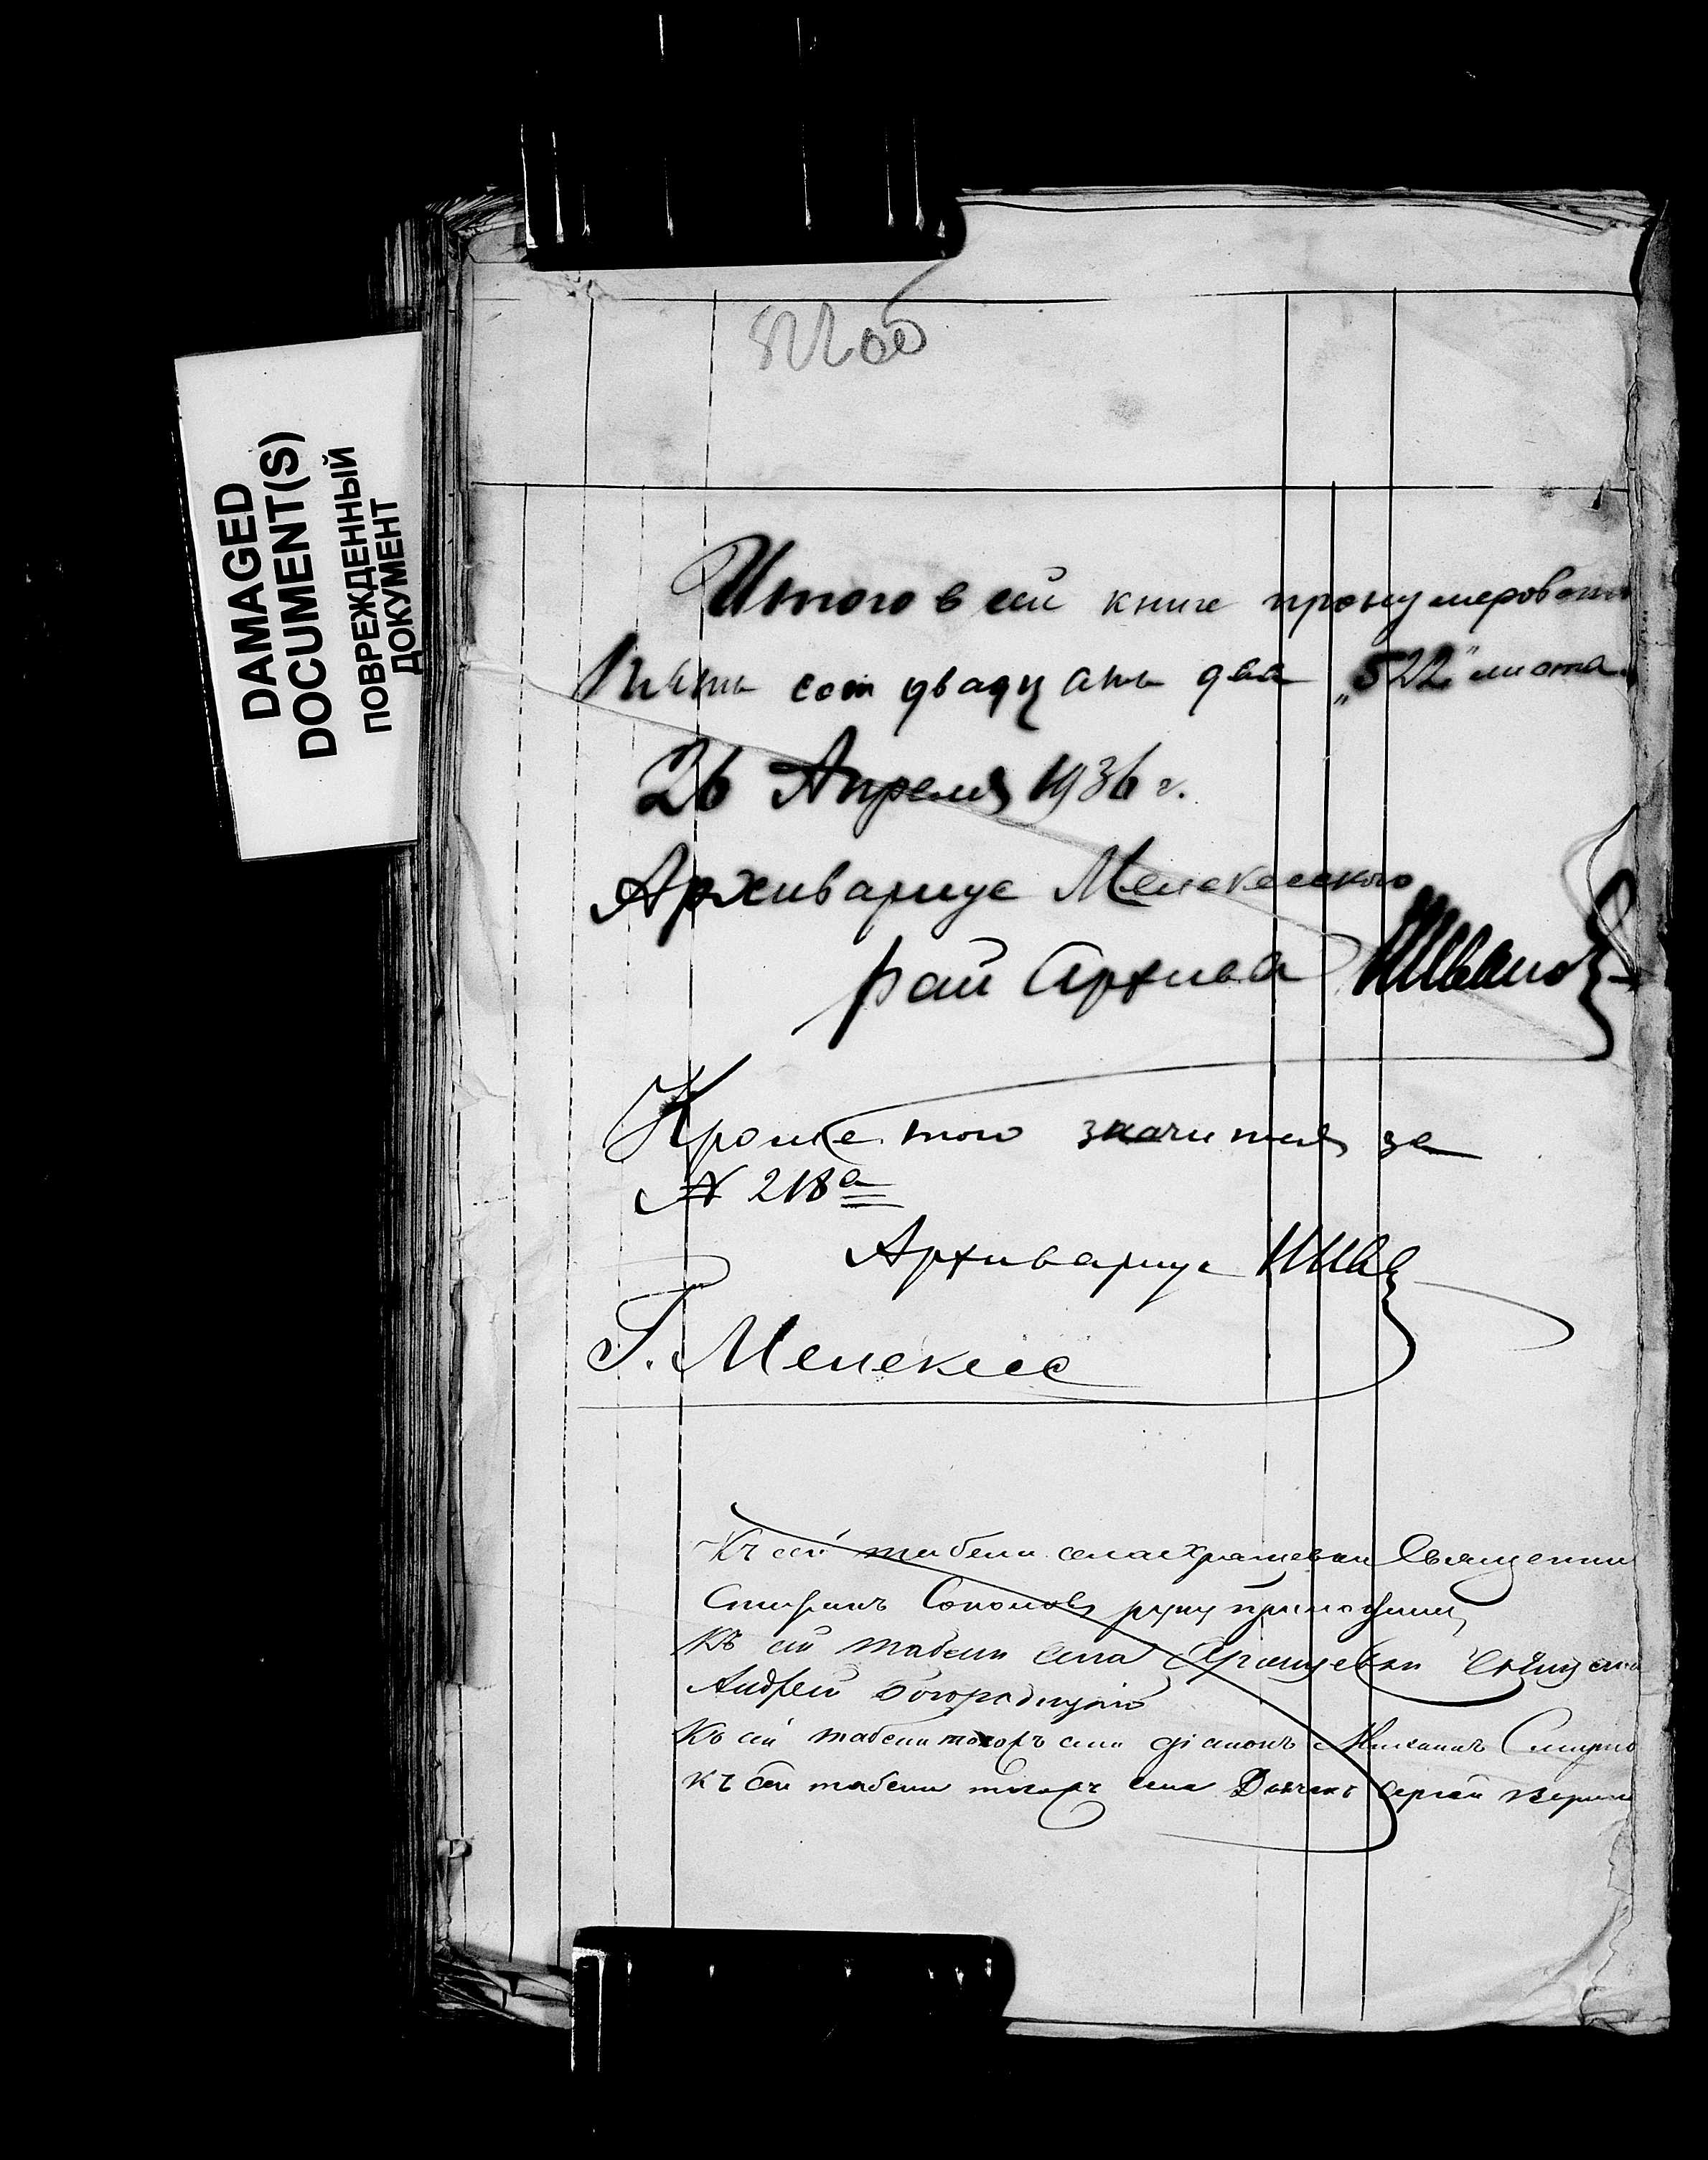 DAMAGED
DOCUMENT(S)
ПОВРЕЖДЕННЫЙ
ДОКУМЕНТ
522об
Итого в сей книге пронумеровано
Пять сот двадцать два „522" листа
26 Апреля 1936 г.
Архивариус Мелекесского
рай Архива ИИванов
Кроме того значится за
№ 218а
Архивариус ИИв
Г. Мелекесс
Къ сей табели села Хрящевки Священни
Стефанъ Соколовъ руку приложилъ
Къ сей табели села Хрящевки Священ
Андрей Богородицкій
Къ сей табели тогожъ села діаконъ Михаилъ Смирно
Къ сей табели тогожъ села Дьячекъ Сергей